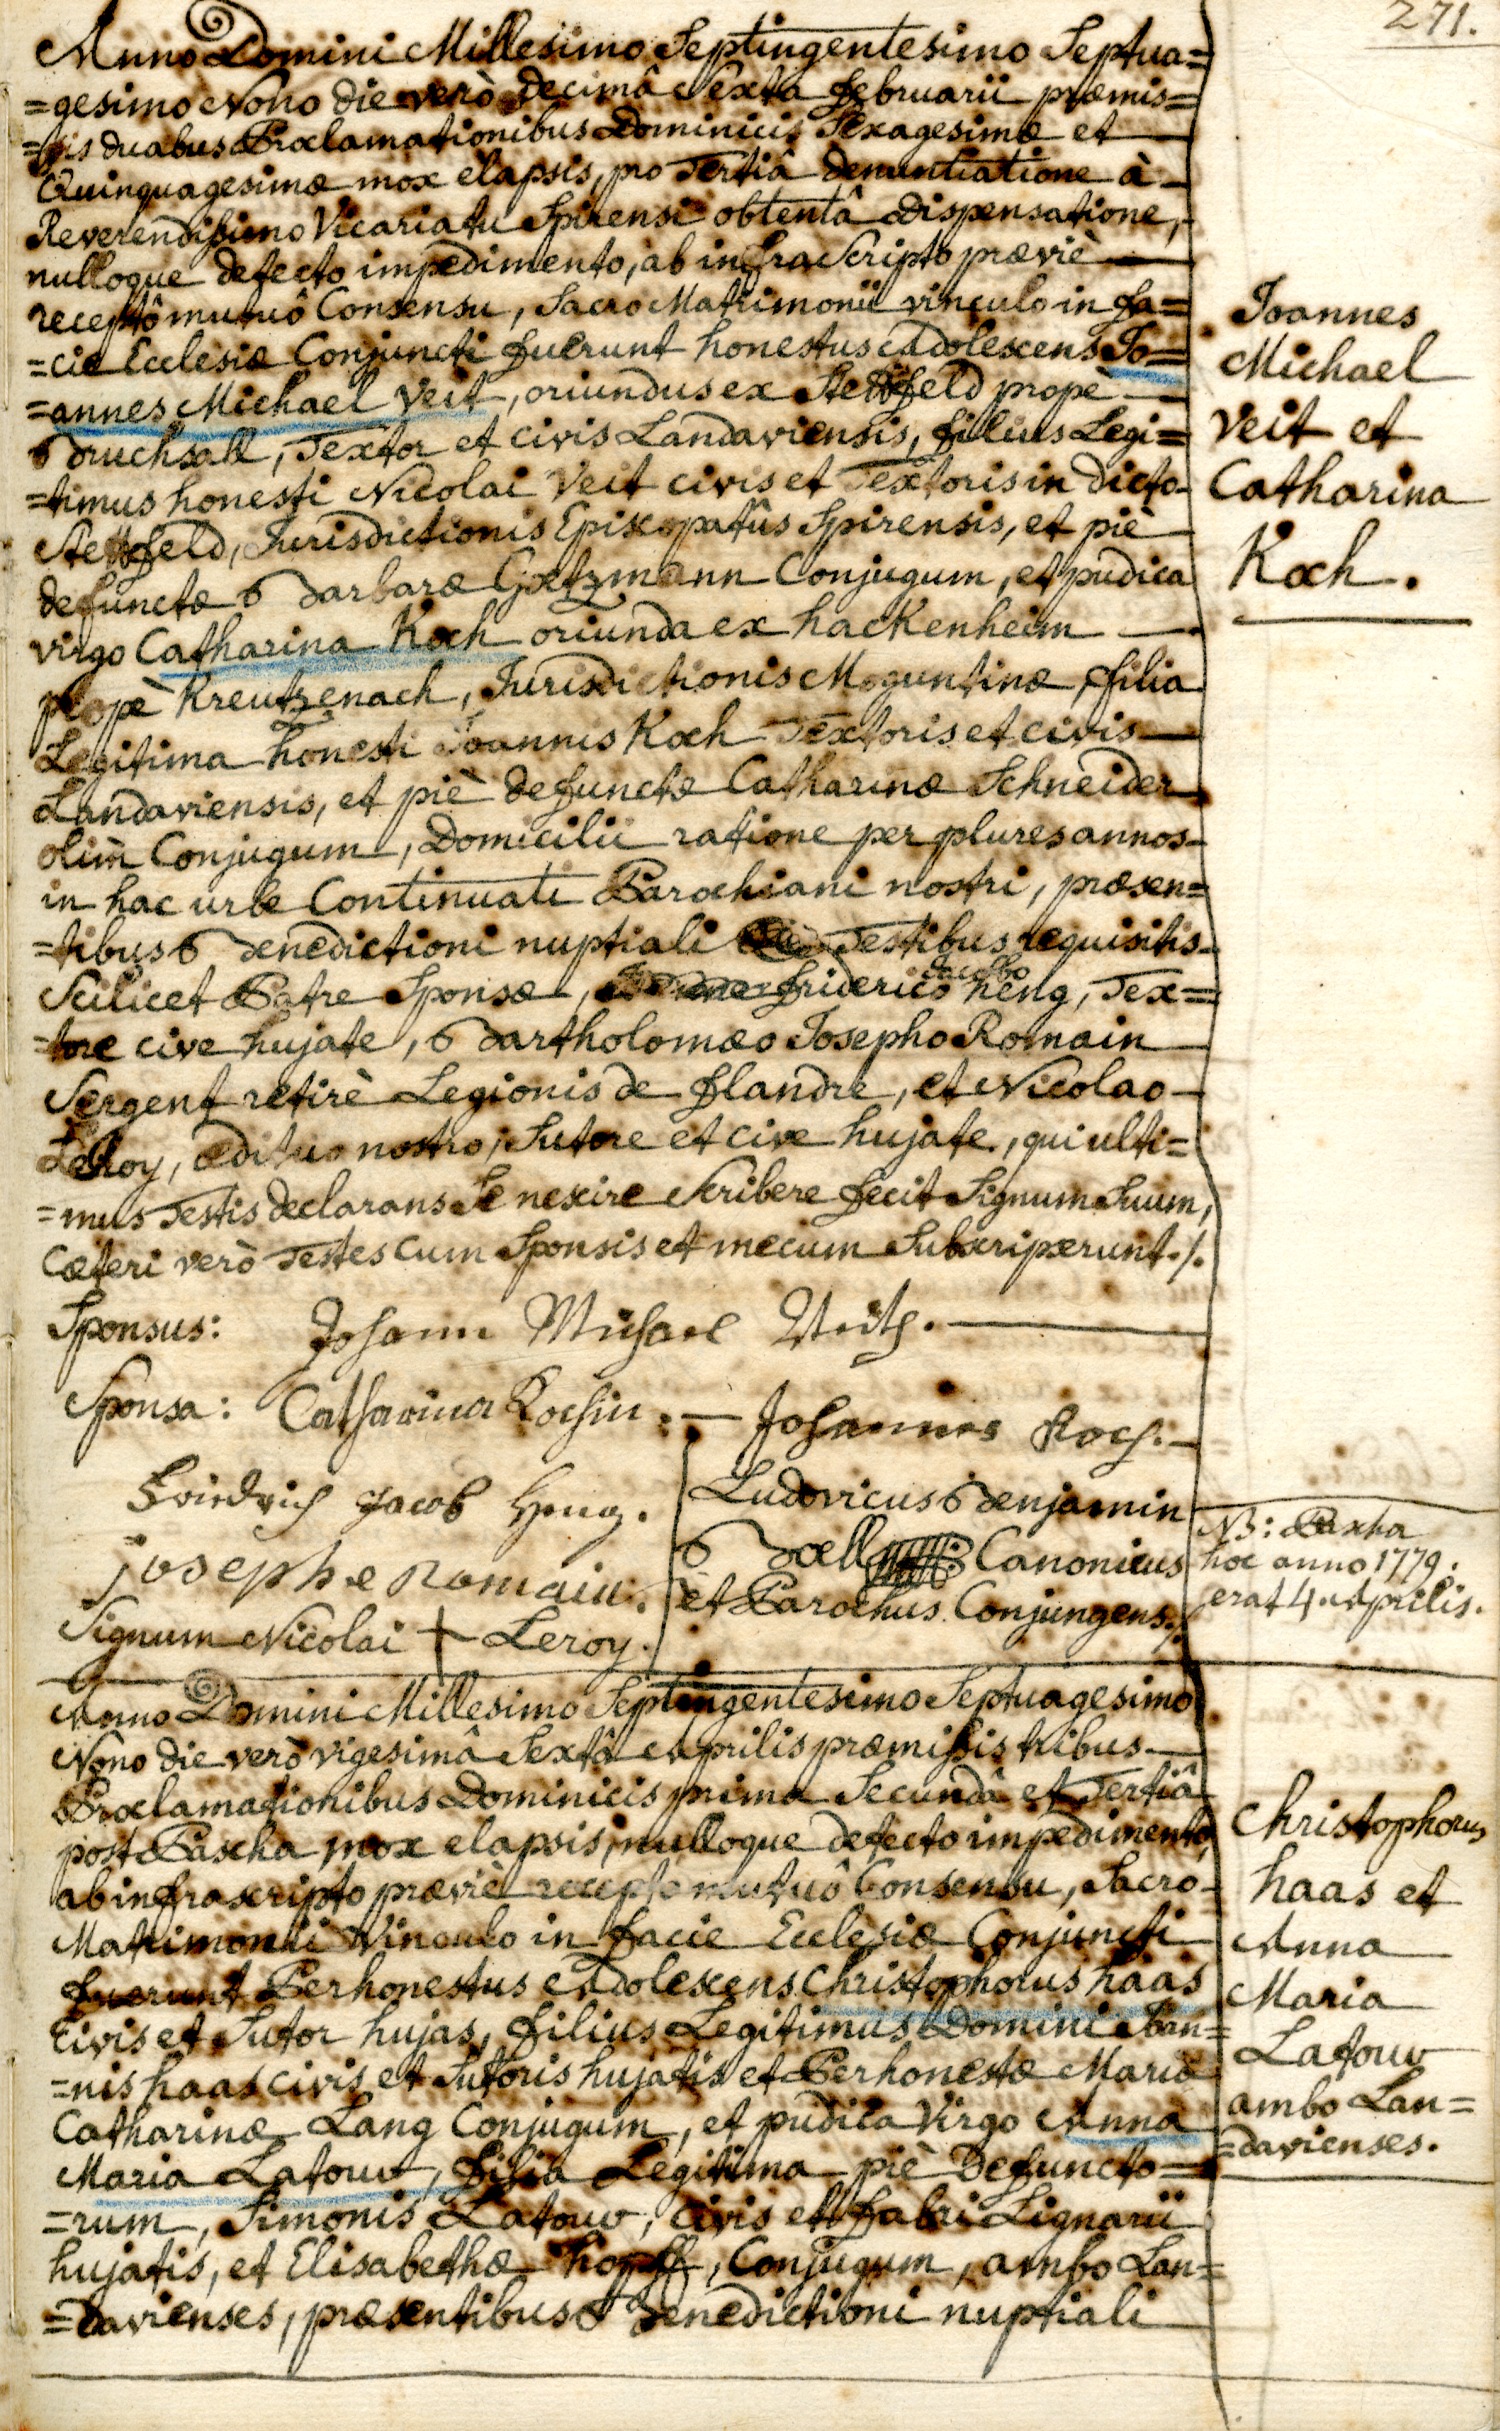 271.
Anno Domini Millesimo Septingentesimo Septua=
=gesimo Nono die verò decimâ Sexta Februarii præmis=
=sis duabus Proclamationibus Dominicis Sexagesimæ et
Quinquagesimæ mox elapsis, pro Tertiâ denuntiatione à
Reverendissimo Vicariatu Spirensi obtentâ Dispensatione,
nulloque detecto impedimento, ab infra Scripto præviè
receptô mutuô Consensu, Sacro Matrimonii vinculo in fa=
=cie Ecclesiæ Conjuncti fuerunt honestus Adolescens Jo=
=annes Michael Veit, oriundus ex Stettfeld propè
Bruchsall, Textor et civis Landaviensis, filius Legi=
=timus honesti Nicolai Veit civis et Textoris in dicto
Stettfeld, Jurisdictionis Episcopatûs Spirensis, et piè
defunctæ Barbaræ Goetzmann Conjugum, et pudica
virgo Catharina Koch oriunda ex hackenheim
propè Kreutzenach, Jurisdictionis Moguntinæ, filia
Legitima honesti Joannis Koch Textoris et civis
Landaviensis, et piè defunctæ Catharinæ Schneider
olim Conjugum, Domicilii ratione per plures annos
in hac urbe Continuati Parochiani nostri, præsen=
=tibus Benedictioni nuptiali Testibus requisitis
Scilicet Patre Sponsæ, Friderico Jacobo heng, Tex=
=tore cive hujate, Bartholomæo Josepho Romain
Sergent retirè Legionis de Flandre, et Nicolao
LeRoy, ædituo nostro, Sutore et cive hujate, qui ulti=
=mus Testis declarans Se nescire Scribere fecit Signum Suum,
Cæteri verò Testes cum Sponsis et mecum Subscripserunt./.
Joannes
Michael
Veit et
Catharina
Koch.
Sponsus: Johann Michael Veith.
Sponsa: Catharina Kochin. — Johannes Koch.
Friedrich Jacob Heng.
josephe Romain.
Signum Nicolai + Leroy.
Ludovicus Benjamin
Boell Canonicus
et Parochus Conjungens./.
NB: Pascha
hoc anno 1779.
erat 4. Aprilis.
Anno Domini Millesimo Septingentesimo Septuagesimo
Nôno die verò vigesimâ Sextâ Aprilis præmissis tribus
Proclamationibus Dominicis prima Secundâ et Tertiâ
post Pascha mox elapsis, nulloque detecto impedimento,
ab infrascripto præviè recepto mutuô Consensu, Sacro
Matrimonii Vinculo in facie Ecclesiæ Conjuncti
fuerunt Perhonestus Adolescens Christophorus haas
Civis et Sutor hujas, filius Legitimus Domini Joan=
=nis haas civis et Sutoris hujatis et Perhonestæ Mariæ
Catharinæ Lang Conjugum, et pudica Virgo Anna
Maria Latouv, filia Legitima piè Defuncto=
=rum, Simonis Latouv, civis et fabri Lignarii
hujatis, et Elisabethæ hopff, Conjugum, ambo Lan=
=davienses, præsentibus Benedictioni nuptiali
Christophorus
haas et
Anna
Maria
Latouv
ambo Lan=
=davienses.